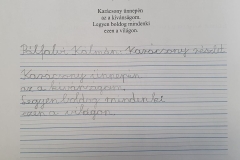 Karácsony ünnepén
az a kívánságom:
Legyen boldog mindenki
ezen a világon.
Kálmán: Karácsony
Karácsony ünnepén
az a kívánságom
Legyen boldog mindenki
ezen a világon